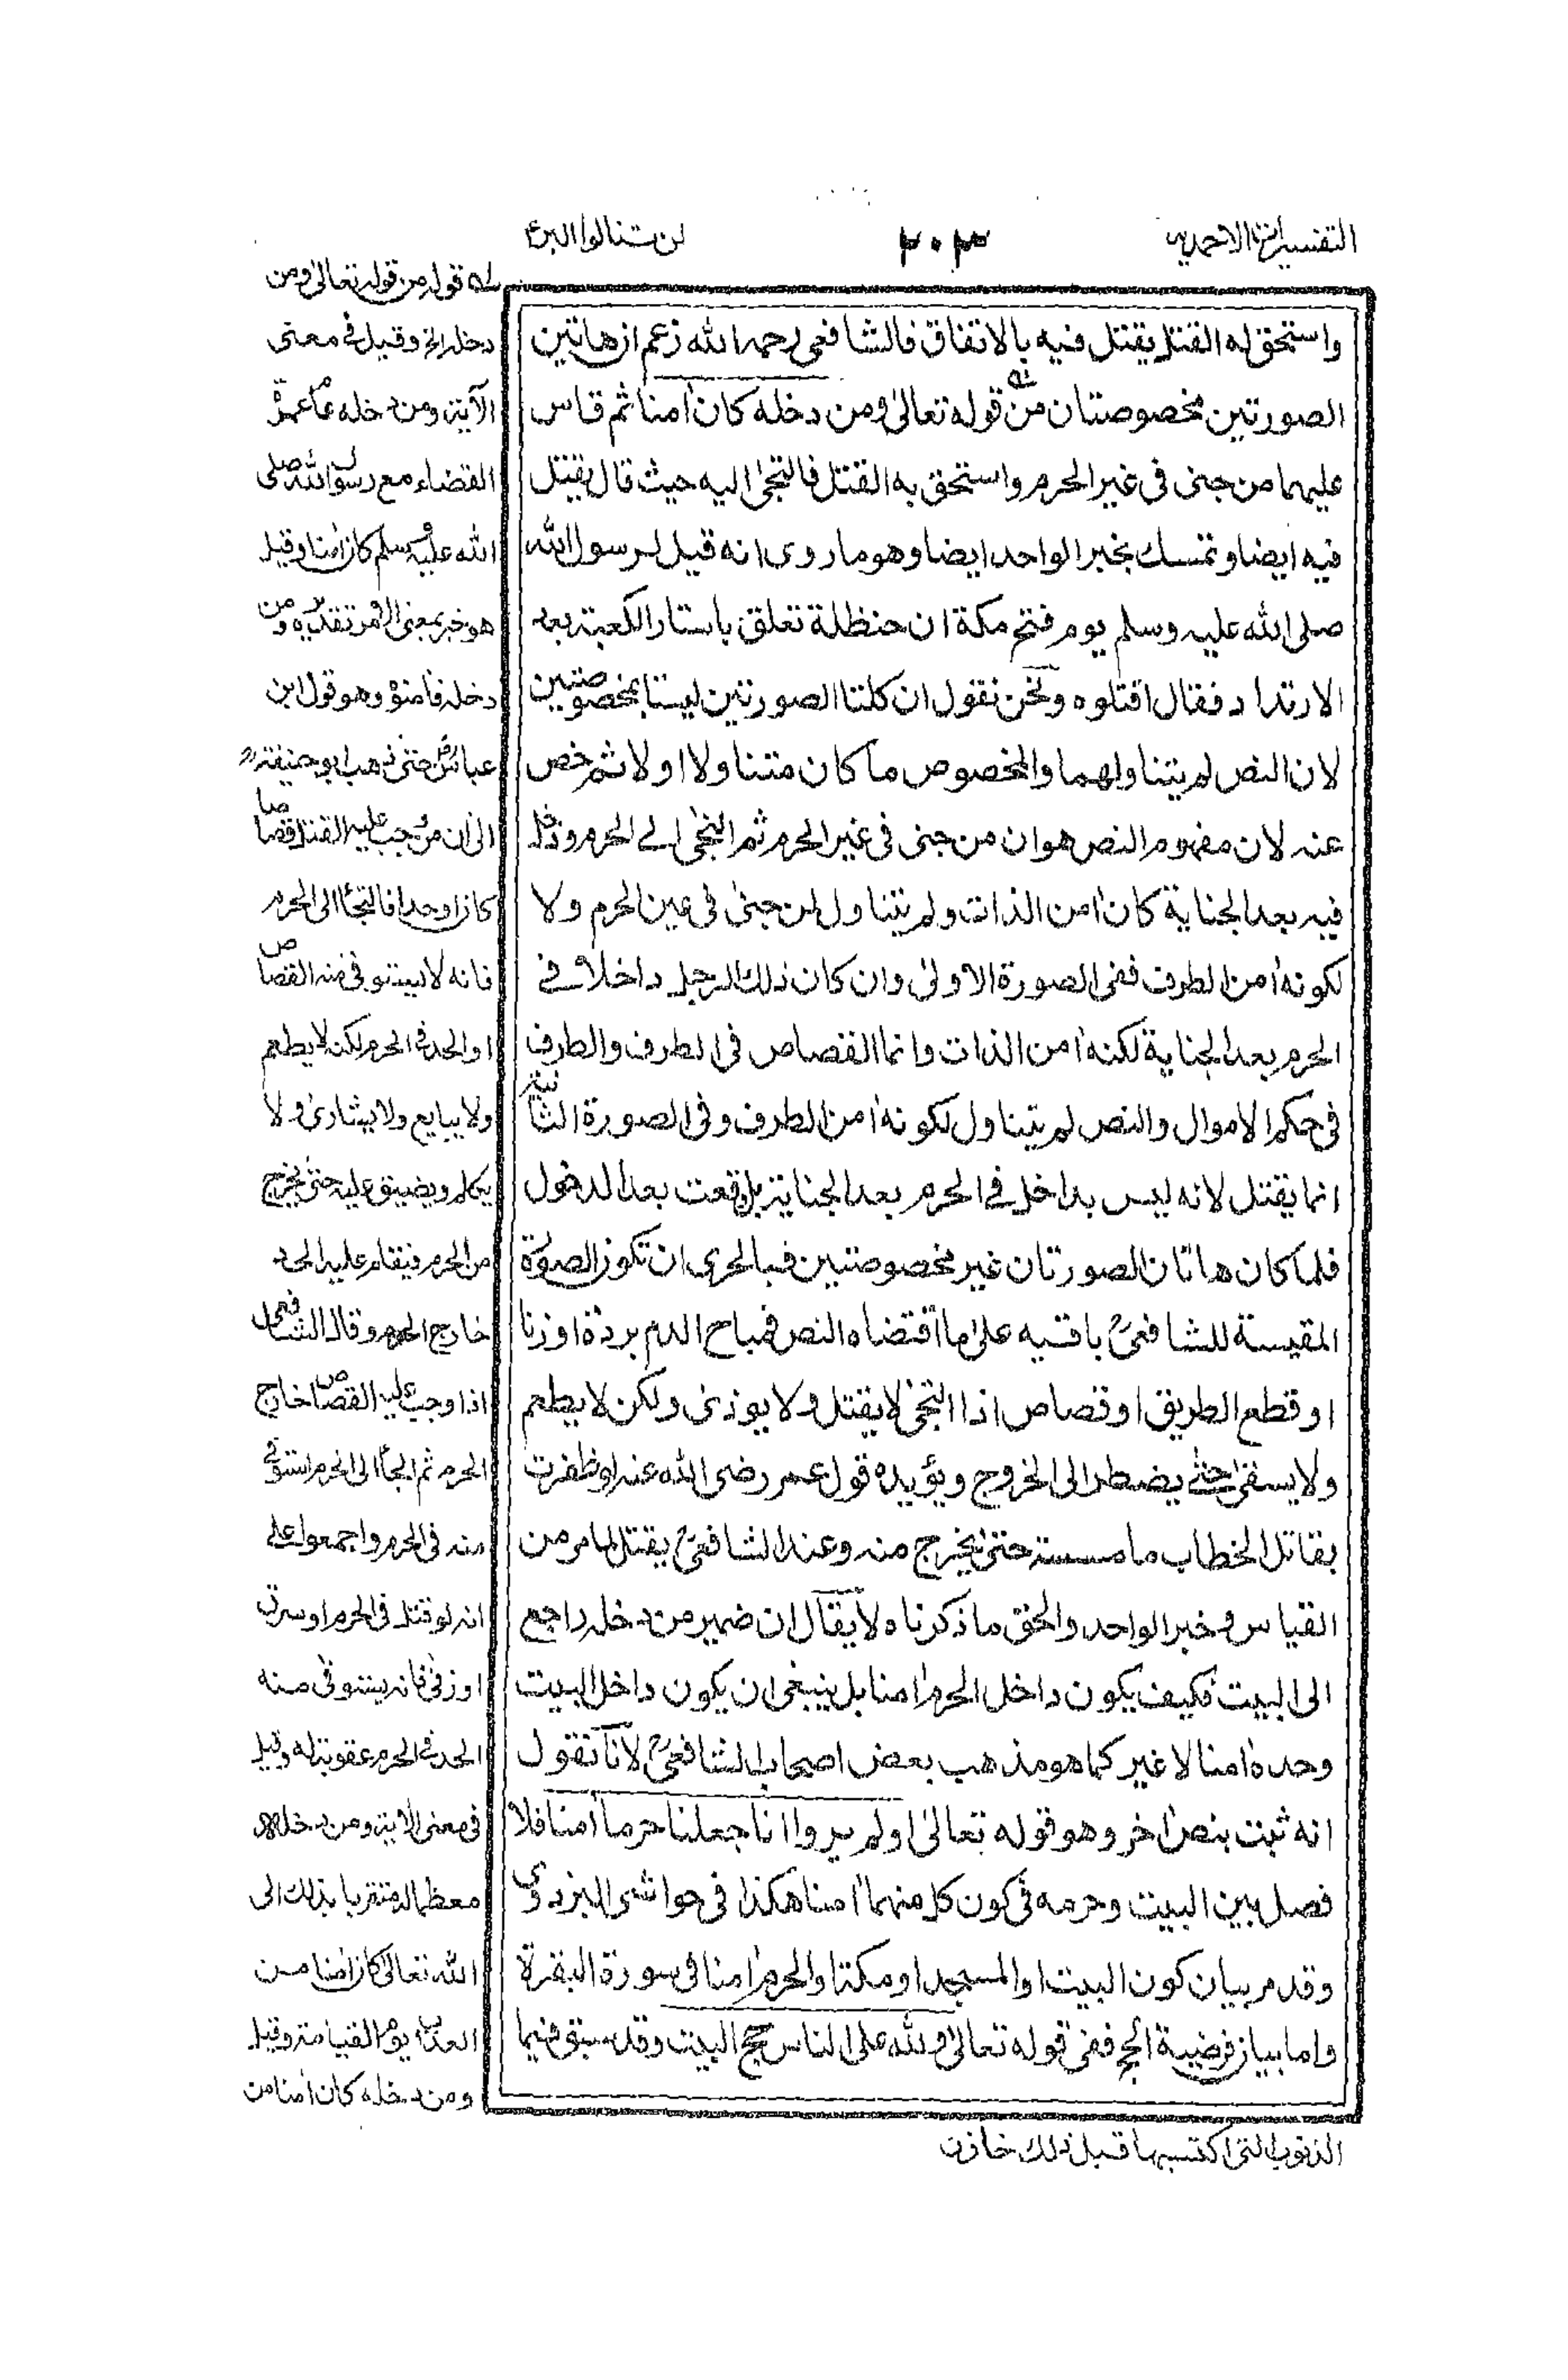 التفسيرات الاحمديه
٢٠٣
لن تنالوا البر ع
واستحق له القتل يقتل فيه بالاتفاق فالشافعى رحمه الله زعم ان هاتين
الصورتين مخصوصتان من قوله تعالىٰ ومن دخله كان اٰمنا ثم قاس
عليهما من جنى فى غير الحرم واستحق به القتل فالتجىٰ اليه حيث قال يقتل
فيه ايضا وتمسك بخبر الواحد ايضا وهو ما روى انه قيل لرسول الله
صلى الله عليه وسلم يوم فتح مكة ان حنظلة تعلق باستار الكعبة بعد
الارتداد فقال اقتلوه ونحن نقول ان كلتا الصورتين ليستا بمخصوصتين
لان النص لم يتناولهما والمخصوص ما كان متناولا اولا ثم خص
عنه لان مفهوم النص هو ان من جنى فى غير الحرم ثم التجىٰ الے الحرم ودخل
فيه بعد الجناية كان اٰمن الذات ولم يتناول لمن جنىٰ فى عين الحرم ولا
لكونه اٰمن الطرف ففى الصورة الاولىٰ وان كان ذلك الرجل داخلا فے
الحرم بعد الجناية لكنه اٰمن الذات وانما القصاص فى الطرف والطرف
فى حكم الاموال والنص لم يتناول لكونه اٰمن الطرف وفى الصورة الثانية
انما يقتل لانه ليس بداخل فے الحرم بعد الجناية بل وقعت بعد الدخول
فلما كان هاتان الصورتان غير مخصوصتين فبالحرى ان تكون الصورة
المقيسة للشافعىؒ باقيه علىٰ ما اقتضاه النص فمباح الدم بردة او زنا
او قطع الطريق او قصاص اذا التجىٰ لا يقتل ولا يوذىٰ ولكن لا يطعم
ولا يسقىٰ حتىٰ يضطر الى الخروج ويؤيده قول عمر رضى الله عنه لو ظفرت
بقاتل الخطاب ما مسسته حتىٰ يخرج منه وعند الشافعىؒ يقتل لما مر من
القياس وخبر الواحد والحق ما ذكرناه لا يقال ان ضمير من دخله راجع
الى البيت فكيف يكون داخل الحرم اٰمنا بل ينبغى ان يكون داخل البيت
وحده اٰمنا لا غير كما هو مذهب بعض اصحاب الشافعىؒ لانا نقول
انه ثبت بنص اٰخر وهو قوله تعالىٰ اولم يروا انا جعلنا حرما اٰمنا فلا
فصل بين البيت وحرمه فى كون كل منهما اٰمنا هكذا فى حواشى البزدوى
وقد مر بيان كون البيت او المسجد او مكة او الحرم اٰمنا فى سورة البقرة
واما بيان فرضية الحج ففى قوله تعالىٰ ولله على الناس حج البيت وقد سبق فيما
له قوله من قوله تعالىٰ ومن
دخله الخ وقيل فى معنى
الآية ومن دخله عام عمرة
القضاء مع رسول الله صلى
الله عليه وسلم كان اٰمنا وقيل
هو خبر بمعنى الامر تقديره ومن
دخله فامنوه وهو قول ابن
عباسؓ حتىٰ ذهب ابو حنيفةؒ
الىٰ ان من وجب عليه القتل قصاصا
كان او حدا فالتجأ الى الحرم
فانه لا يستوفىٰ منه القصاص
او الحد فى الحرم لكن لا يطعم
ولا يبايع ولا يشارىٰ ولا
يكلم ويضيق عليه حتىٰ يخرج
من الحرم فيقام عليه الحد
خارج الحرم وقال الشافعىؒ
اذا وجب عليه القصاص خارج
الحرم ثم التجأ الى الحرم استوفى
منه فى الحرم واجمعوا على
انه لو قتل فى الحرم او سرق
او زنىٰ فانه يستوفىٰ منه
الحد فى الحرم عقوبة له وقيل
فى معنى الاٰية ومن دخله
معظما له متقربا بذلك الى
الله تعالىٰ كان اٰمنا من
العذاب يوم القيامة وقيل
ومن دخله كان اٰمنا من
الذنوب التى اكتسبها قبل ذلك خازن